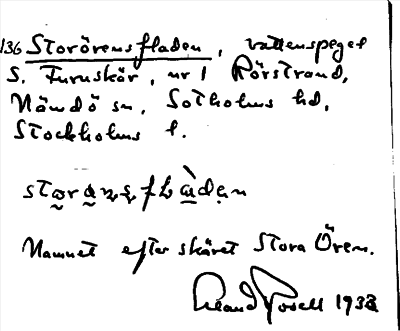 136 Storörensfladen, vattenspegel
S. Furuskär, nr 1 Rörstrand,
Nämdö sn, Sotholms hd,
Stockholms l.
Namnet efter skäret Stora Ören.
1933